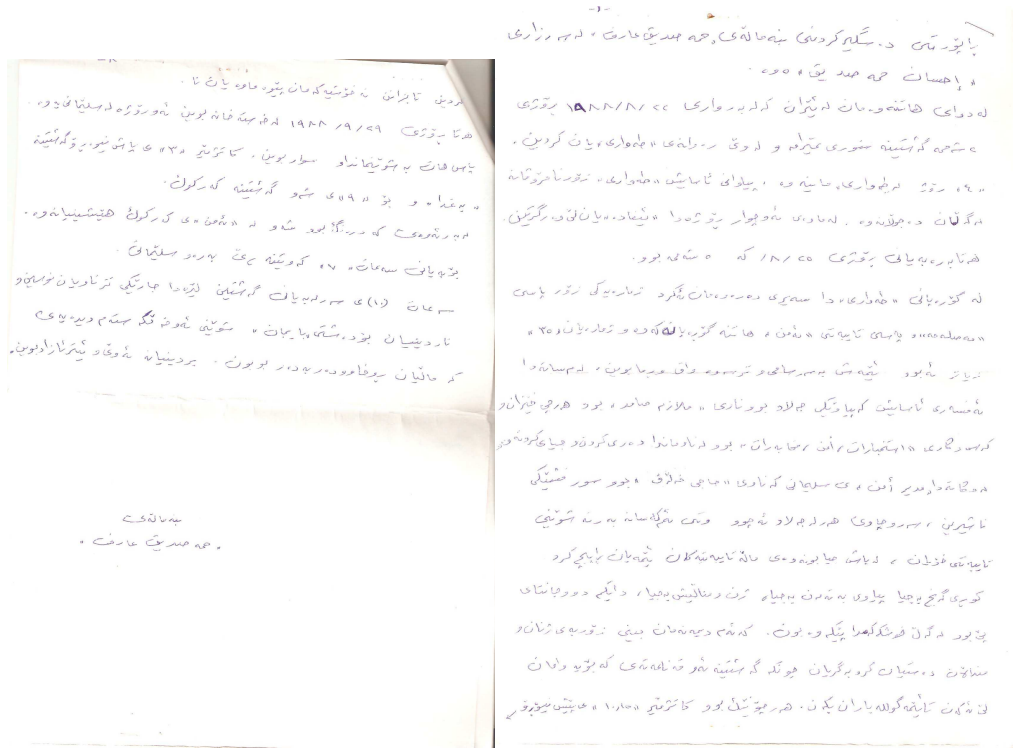 -١-
ڕاپۆرتی دەستگیرکردنی بنەماڵەی حمە صدیق عارف، لەسەر زاری
«إحسان حمە صدیق» ەوە.
لە دوای هاتنەوەمان لە ئێران کە لە بەرواری ١٩٨٨/٨/٢٢ ڕۆژی
شەممە گەشتینە سنوری عێراق و لەوێ ڕەوانەی «طەواری» یان کردین.
«٤» ڕۆژ لە طەواری ماینەوە، پیاوانی ئاسایش «طەواری» زۆر نامرۆڤانە
لەگەڵمان دەجوڵانەوە. لە ماوەی ئەو چوار ڕۆژەدا «ئیفادە» یان لێ وەرگرتین.
هەتا بەرەبەیانی ڕۆژی ٨/٢٥ کە شەممە بوو.
لە گۆڕەپانی «طەواری» دا سەیری دەرەوەمان ئەکرد ژمارەیەکی زۆر پاسی
«مصلحە» و پاسی تایبەتی «ئەمن» هاتنە گۆڕەپانەکەوە و ژمارەیان «٣٥»
زیاتر ئەبوو ئێمەش بەسەرسامی و ترسەوە واق وڕمابوین، لەم ساتەدا
ئەفسەری ئاسایش کە پیاوێکی جەلاد بوو ناوی «ملازم حامد» بوو هەرچی خێزان و
کەس و کاری «استخبارات، أمن، مخابرات» بوو لە ناوماندا دەری کردن و جیای کردنەوە
لەوکاتەدا مدیر أمن ی سلێمانی کە ناوی «حاجی خەلاف» بوو سور
ناشیرین، سەروچاوی هەر لە جەلاد ئەچوو وتی ئەم کەسانە بەرنە شوێنی
تایبەتی خۆیان، لە پاش جیابونەوەی ماڵە تایبەتیەکان ئێمەیان ڕاپێچ کرد
کوڕی گەنج بەجیا پیاوی بەتەمەن بەجیا، ژن و منداڵیش بەجیا، دایکم دووجانتای
پێ بوو لەگەڵ خوشکەکەمدا پێکەوە بون. کە ئەم دیمەنەمان بینی زۆربەی ژنان و
منداڵان دەستیان کرد بە گریان چونکە گەشتینە ئەو قەناعەتەی کە بۆیە وامان
لێ ئەکەن تا ئێمە گوللەباران بکەن. هەرچۆنێک بوو کاتژمێر «١٠،١٥» ی پێش نیوەڕۆ
کردین تا بزانن نەخۆشیەکەمان پێوە ماوە یان نا.
هەتا ڕۆژی ١٩٨٨/٩/٢٩ لە خەستەخانە بوین ئەو ڕۆژە لە سلێمانی یەوە
پاس هات بە شوێنماندا و سواربوین. کاتژمێر «٣» ی پاش نیوەڕۆ گەشتینە
«بەغدا» و بۆ «٩» ی شەو گەشتینە کەرکوک.
لەبەرئەوەی کە درەنگ بوو شەو لە «ئەمن» ی کەرکوک هێشتینیانەوە.
بۆ بەیانی سەعات «٧» کەوتینە ڕێ بەرەو سلێمانی.
سەعات (١٠) ی سەرلەبەیان گەشتین لێرەدا جارێکی تر ناویان نوسین و
ناردینیان بۆ دەشتی بایمان، شوێنی ئەو خەڵکە ستەم دیدەیەی
کە ماڵیان ڕوخاو و دەربەدەر بوبون. بردینیان ئەوێ و ئیتر ئازادبوین.
بنەماڵەی
«حمە صدیق عارف»